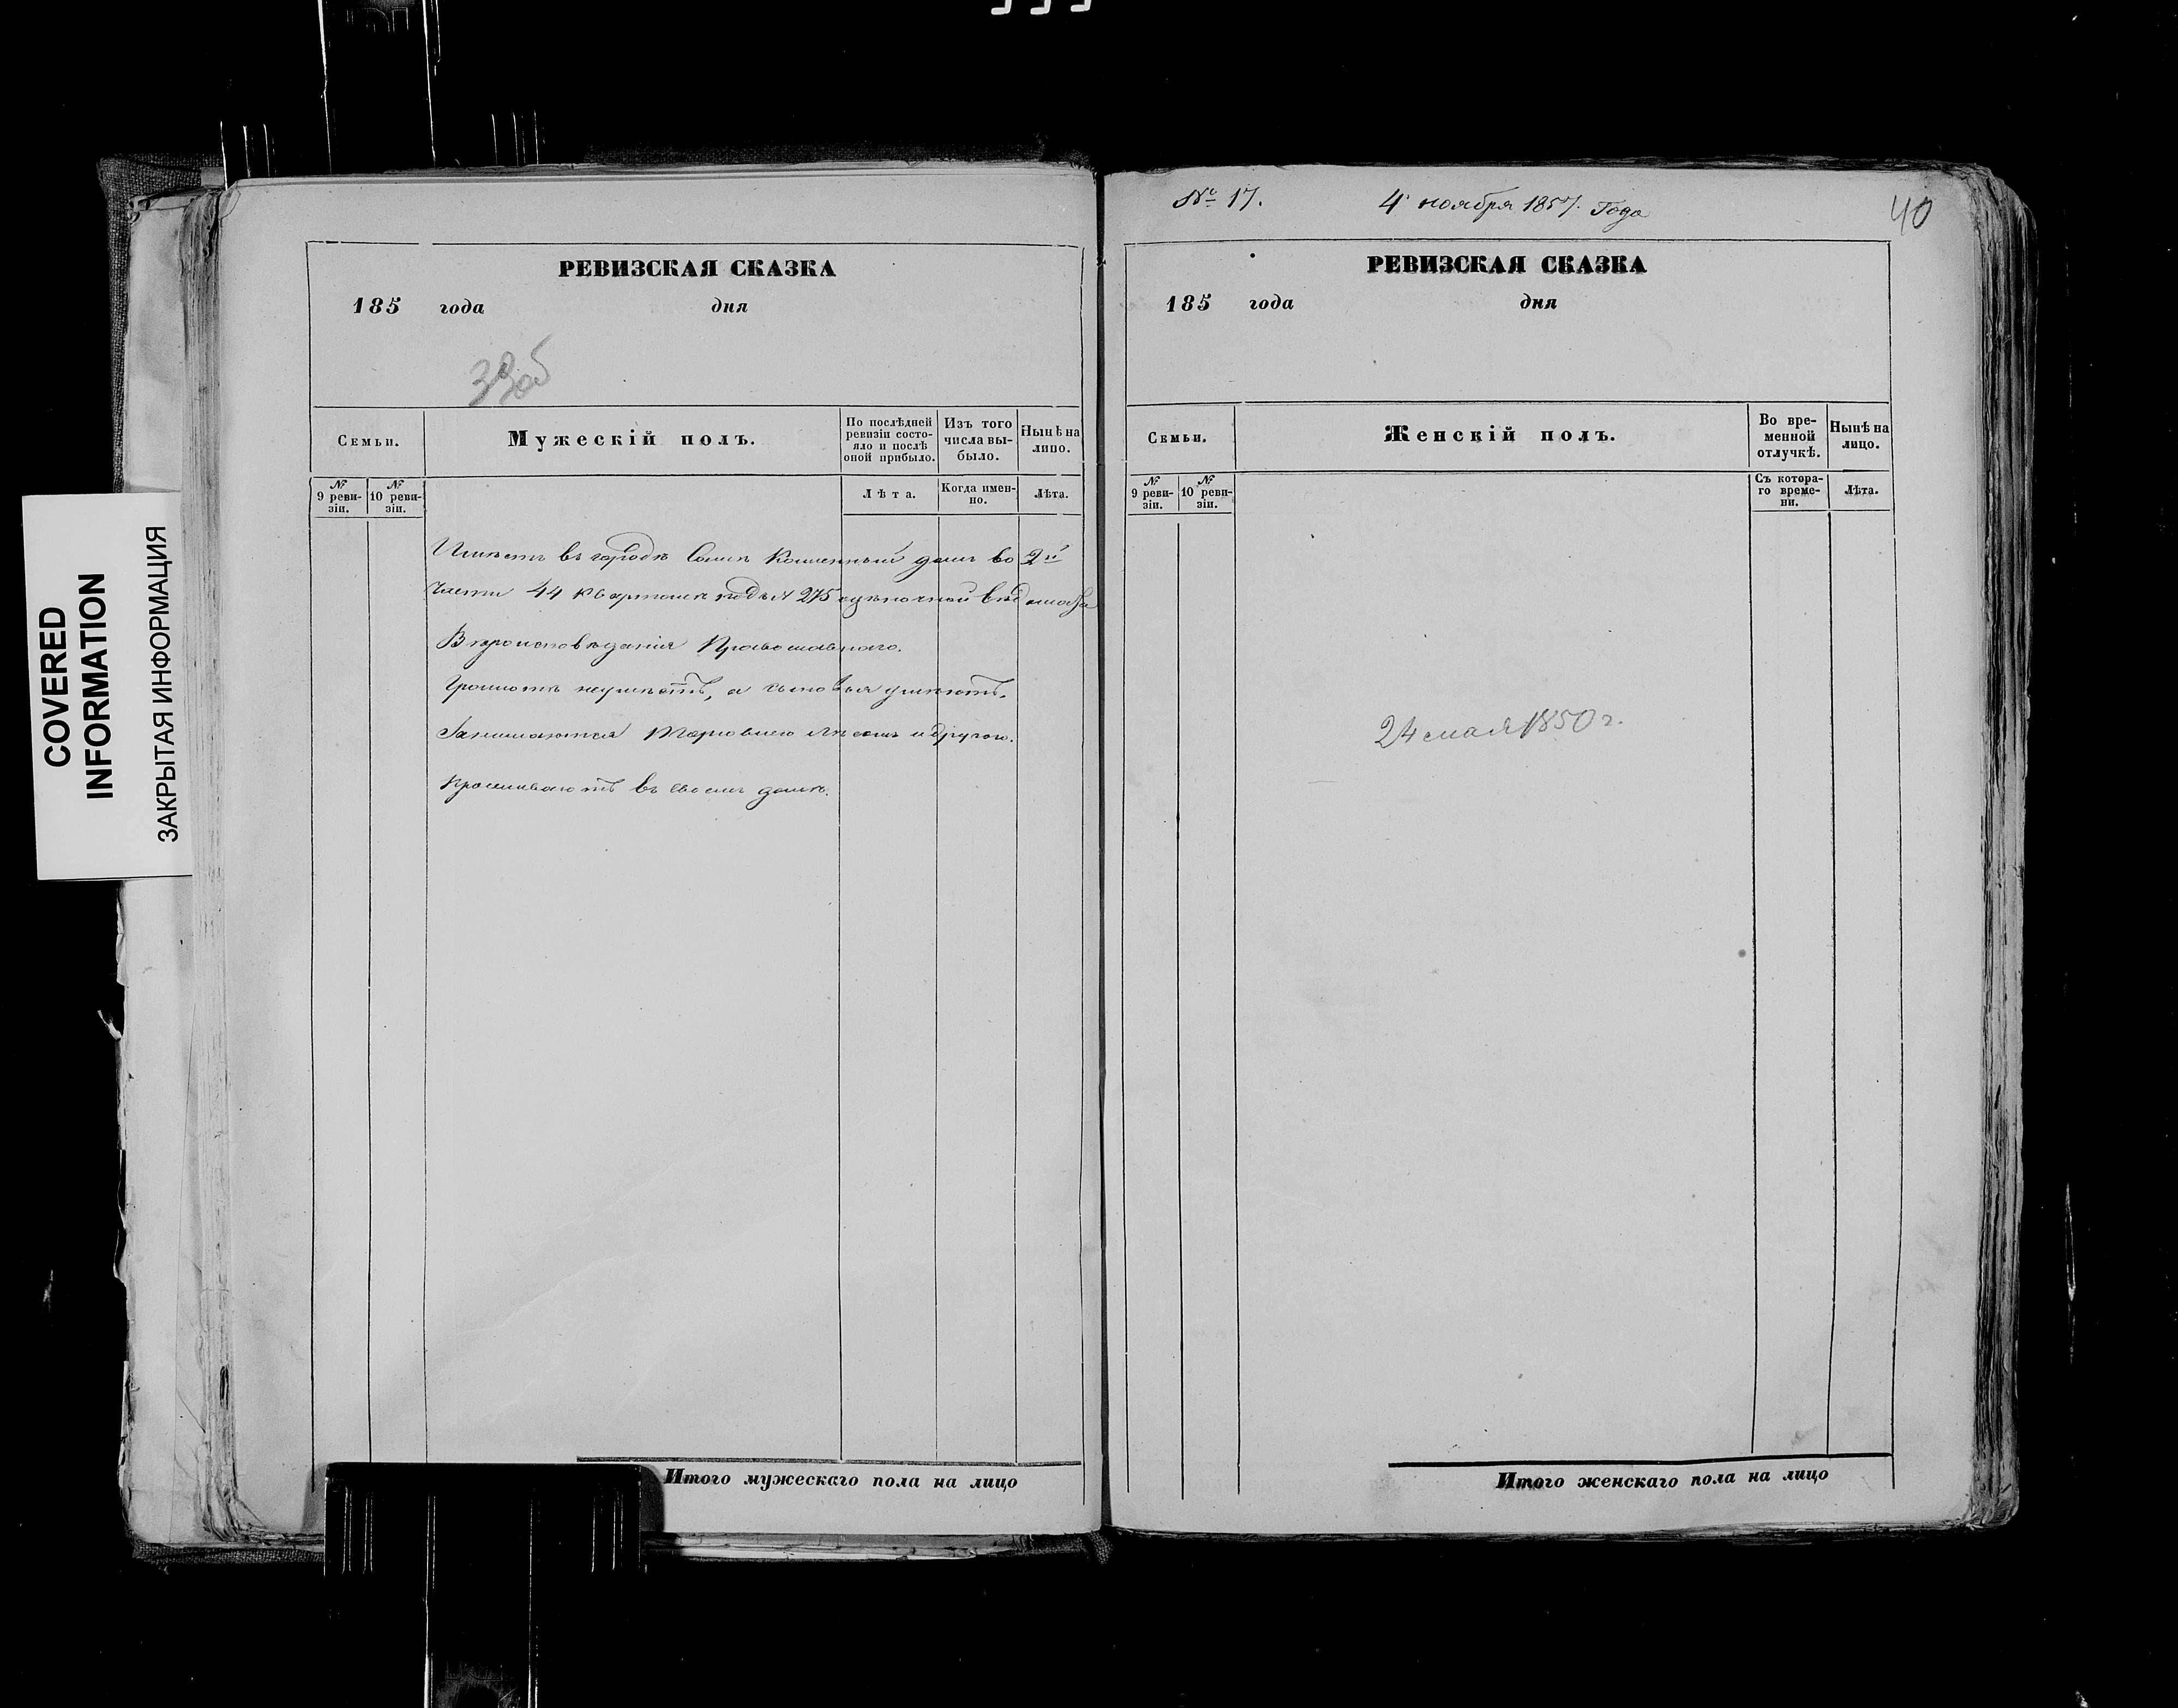 COVERED
INFORMATION
ЗАКРЫТАЯ ИНФОРМАЦИЯ
РЕВИЗСКАЯ СКАЗКА
185 года дня
Семьи.
Мужескій полъ.
По послѣдней ревизіи состояло и послѣ оной прибыло.
Изъ того числа выбыло.
Нынѣ на лицо.
№ 9 ревизіи.
№ 10 ревизіи.
Лѣта.
Когда именно.
Лѣта.
Имѣетъ въ городѣ Каменный домъ во 2й
части 44 квартала подъ № 275 оцѣночной вѣдомости
Вѣроисповѣданія Православнаго.
Грамотѣ неумѣетъ, а сыновья умѣютъ.
Занимаются Торговлею лѣсомъ и другою.
проживаютъ въ своемъ домѣ.
Итого мужескаго пола на лицо
№ 17. 4 ноября 1857. Года
40
РЕВИЗСКАЯ СКАЗКА
185 года дня
Семьи.
Женскій полъ.
Во временной отлучкѣ.
Нынѣ на лицо.
№ 9 ревизіи.
№ 10 ревизіи.
Съ котораго времени.
Лѣта.
24 мая 1850 г.
Итого женскаго пола на лицо